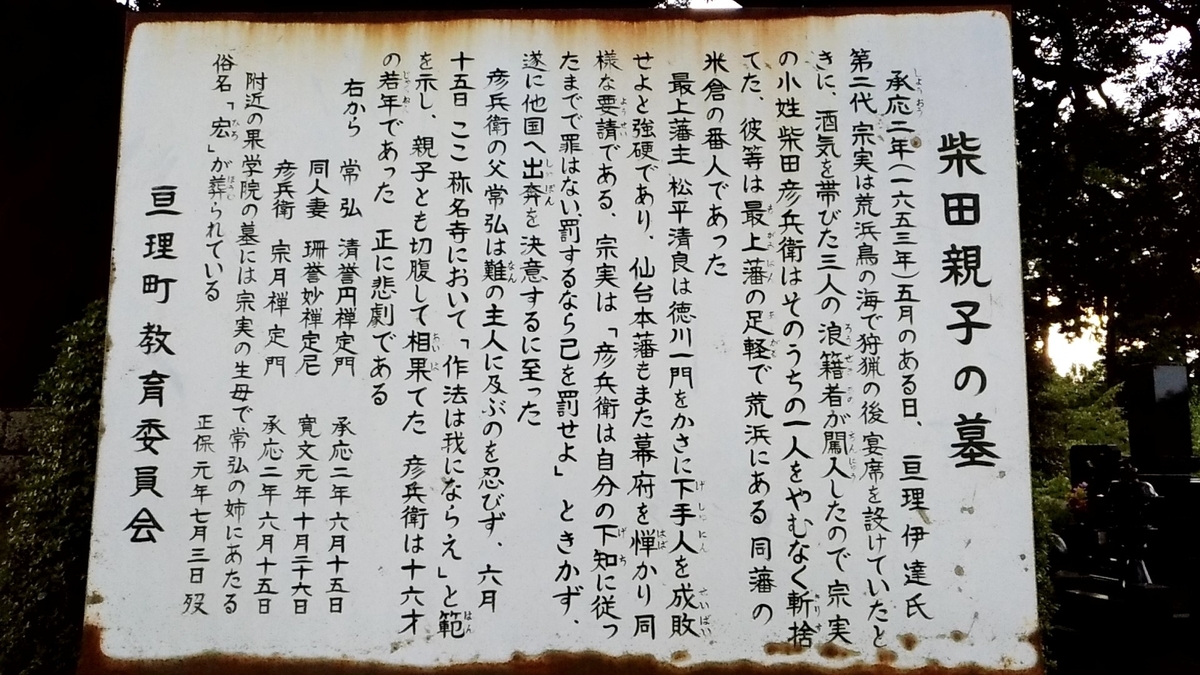 柴田親子の墓
承応二年(一六五三年)五月のある日、亘理伊達氏
第二代宗実は荒浜鳥の海で狩猟の後宴席を設けていたと
きに、酒気を帯びた三人の浪籍者が闖入したので宗実
の小姓柴田彦兵衛はそのうちの一人をやむなく斬捨
てた、彼等は最上藩の足軽で荒浜にある同藩の
米倉の番人であった
最上藩主松平清良は徳川一門をかさに下手人を成敗
せよと強硬であり、仙台本藩もまた幕府を憚かり同
様な要請である、宗実は「彦兵衛は自分の下知に従っ
たまでで罪はない罰するなら己を罰せよ」ときかず、
遂に他国へ出奔を決意するに至った
彦兵衛の父常弘は難の主人に及ぶのを忍びず、六月
十五日ここ称名寺において、「作法は我にならえ」と範
を示し、親子とも切腹して相果てた 彦兵衛は十六才
の若年であった 正に悲劇である
右から 常弘 清誉円禅定門 承応二年六月十五日
同人妻 珊誉妙禅定尼 寛文元年十月二十六日
彦兵衛 宗月禅定門 承応二年六月十五日
附近の果学院の墓には宗実の生母で常弘の姉にあたる
俗名「宏」が葬られている 正保元年七月三日歿
亘理町教育委員会